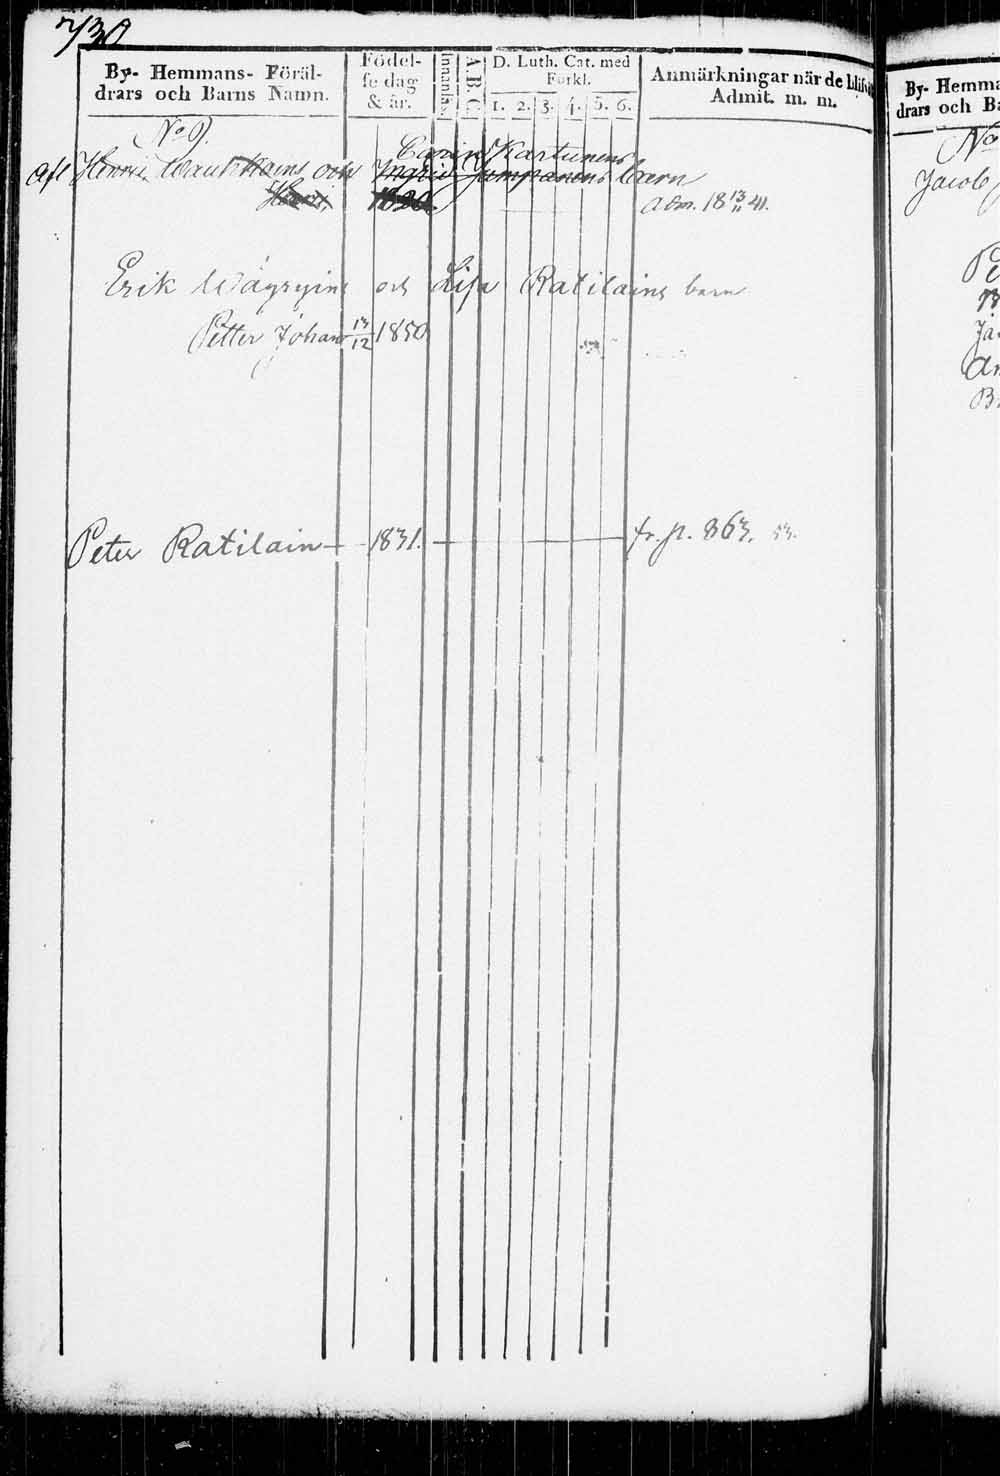 730
By- Hemmans- Föräl-
drars och Barns Namn.
Födel-
se dag
& år.
Innanläs.
A.B.C.
D. Luth. Cat. med
Förkl.
1. 2. 3. 4. 5. 6.
Anmärkningar när de blifvit
Admit. m. m.
No 9.
Carin Kartunens
Afl Henric och Ingrid Jumpanens barn
Henric 1820 Adm. 18 13/11 41.
Erik Wäyryins och Lisa Ratilains barn
Petter Johan 13/12 1850
Peter Ratilain 1831. fr. p. 863. 53.
By- Hemma
drars och Ba
No
Jacob